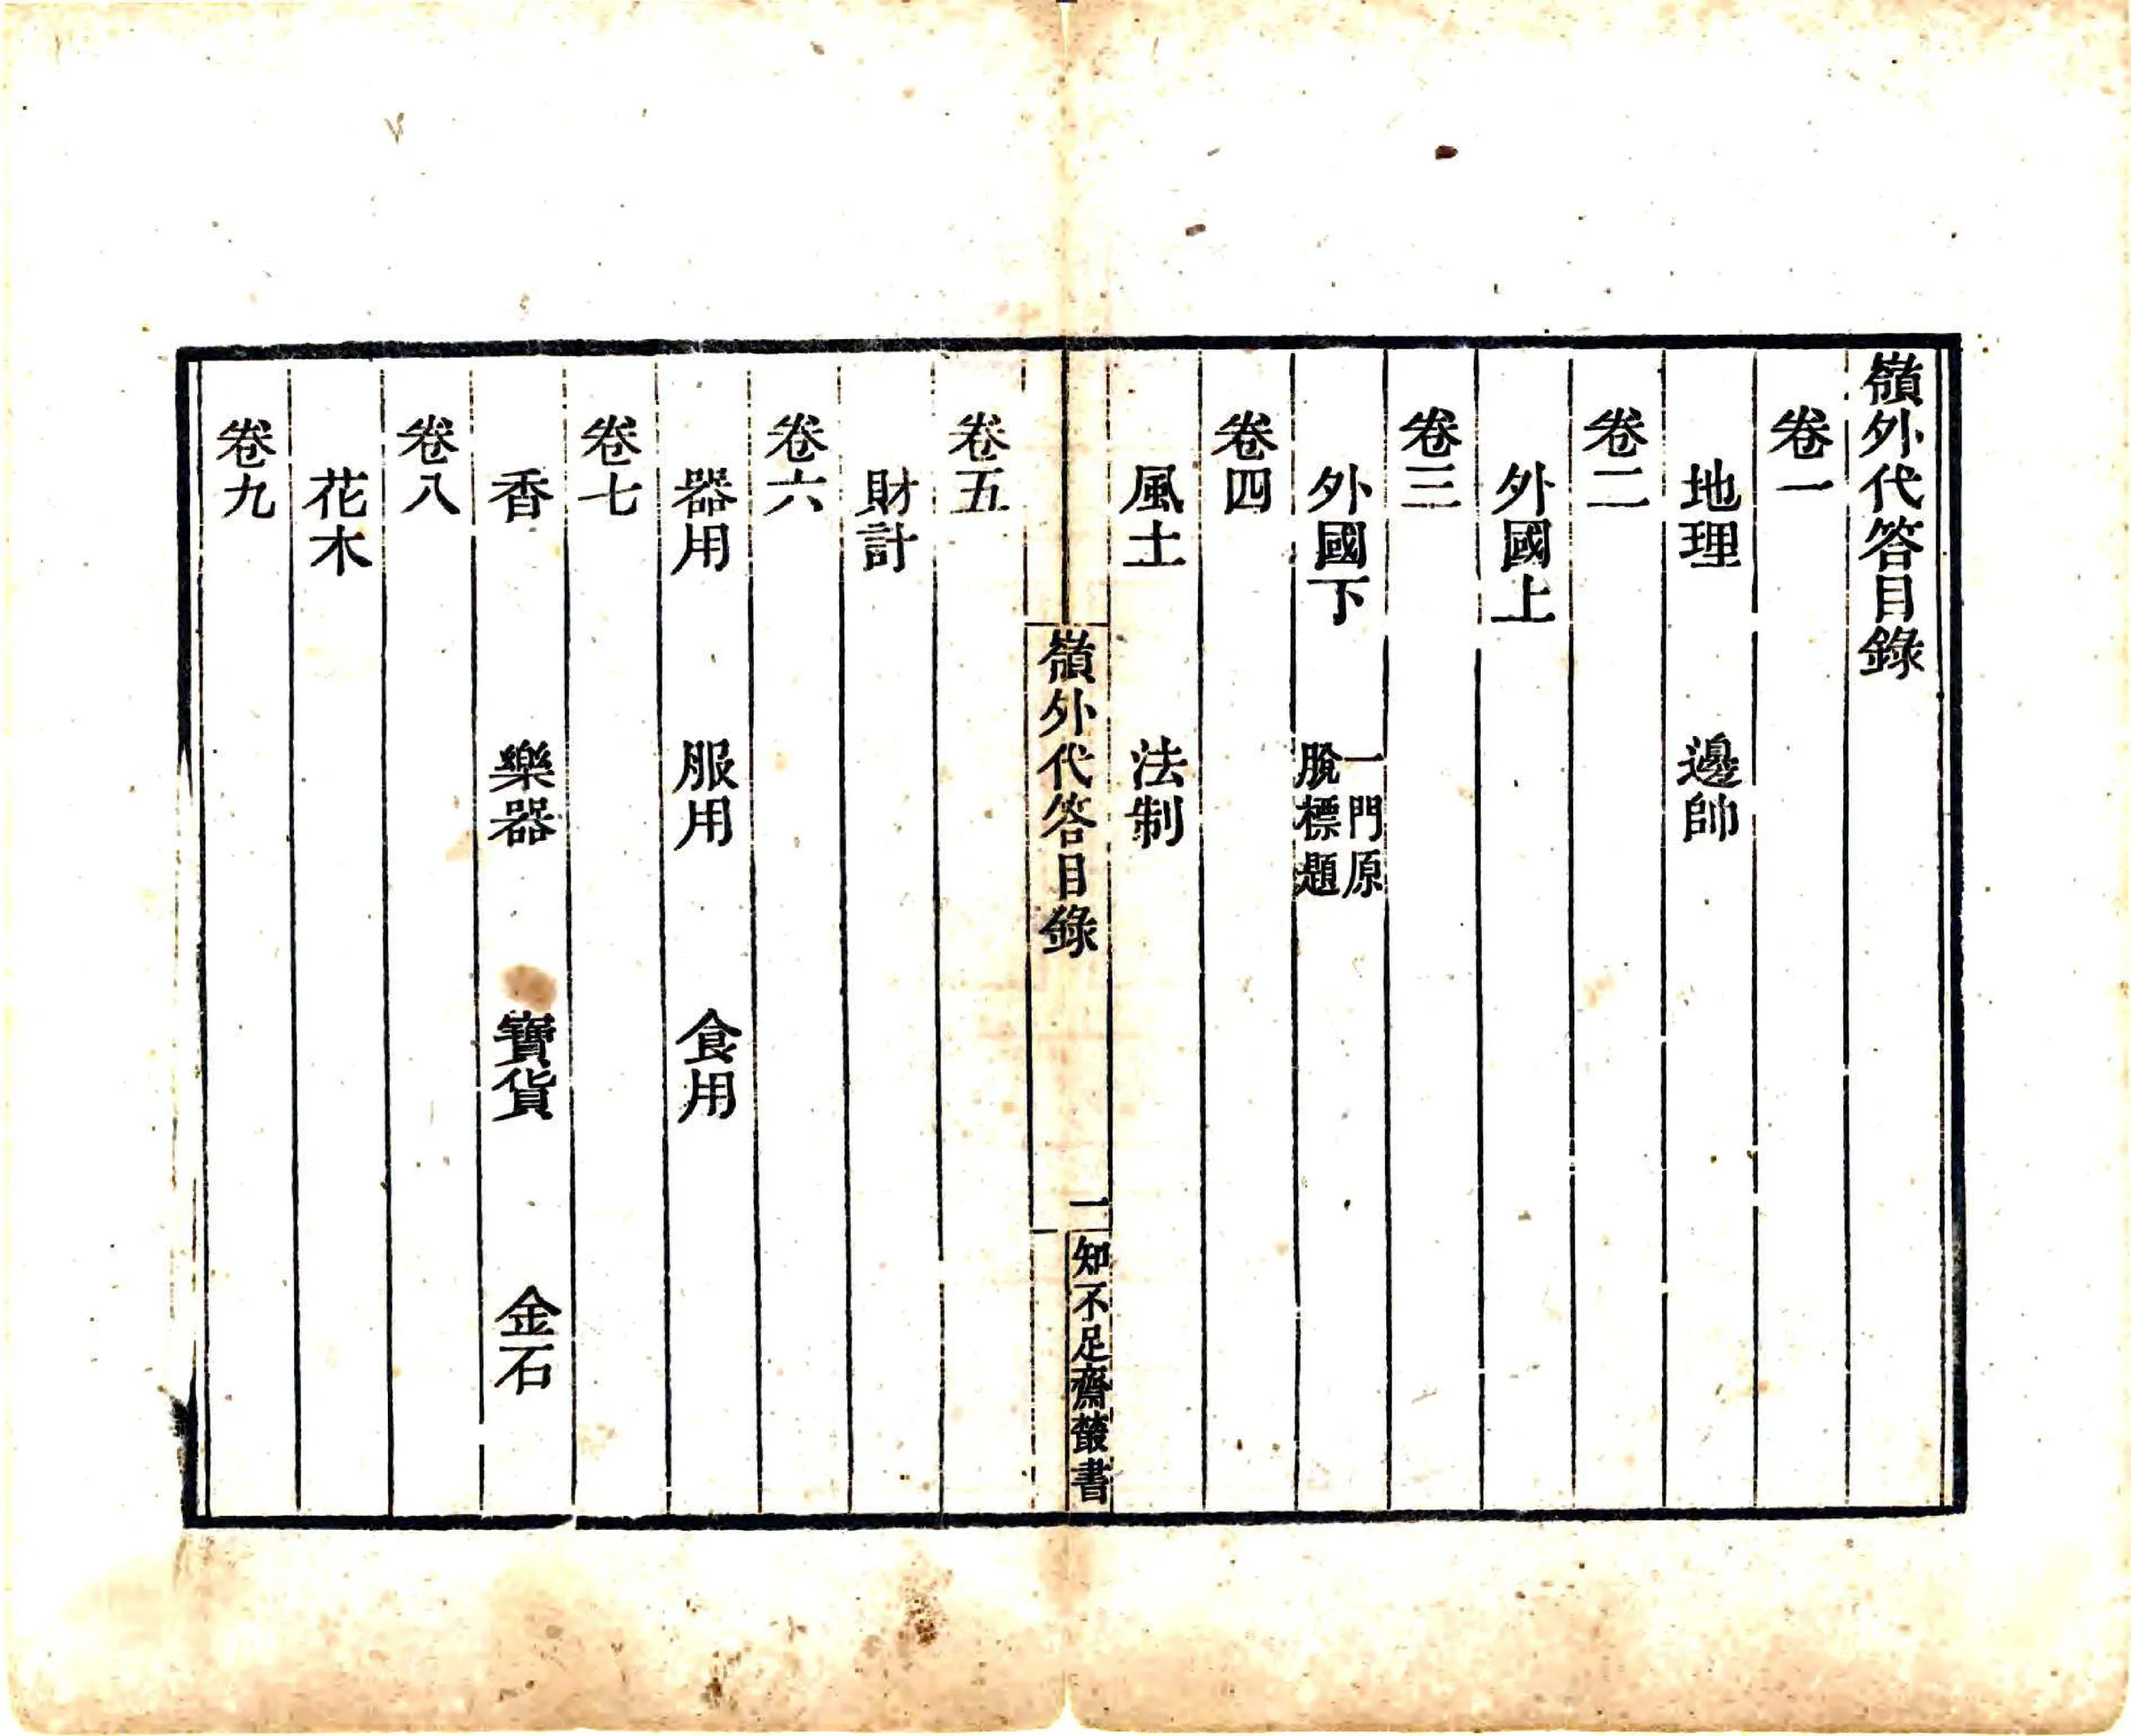 嶺外代答目錄
卷一
地理 邊帥
卷二
外國上
卷三
外國下 一門原脫標題
卷四
風土 法制
嶺外代答目錄 一 知不足齋叢書
卷五
財計
卷六
器用 服用 食用
卷七
香 樂器 寶貨 金石
卷八
花木
卷九